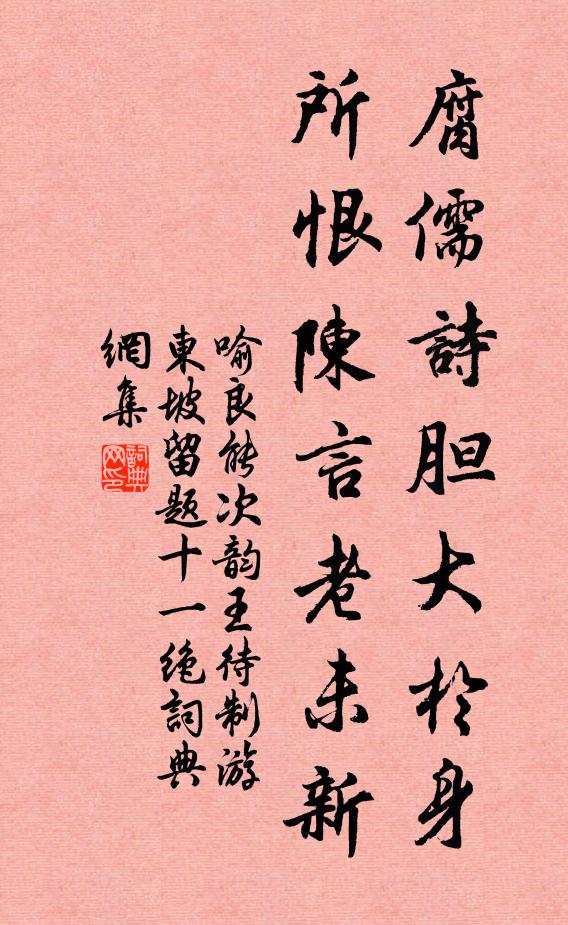 腐儒詩胆大於身
所恨陳言老未新
喻良能次韵王待制游
東坡留題十一绝詞典
網集
詞典
网印